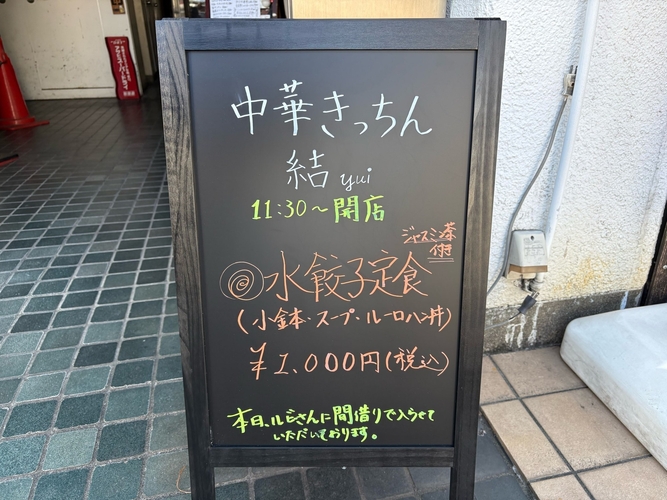 中華きっちん
結 yui
11:30〜開店
ジャスミン茶
付
◎水餃子定食
(小鉢・スープ・ルーロハン丼)
¥1,000円(税込)
本日、ルビさんに間借りで入らせて
いただいております。